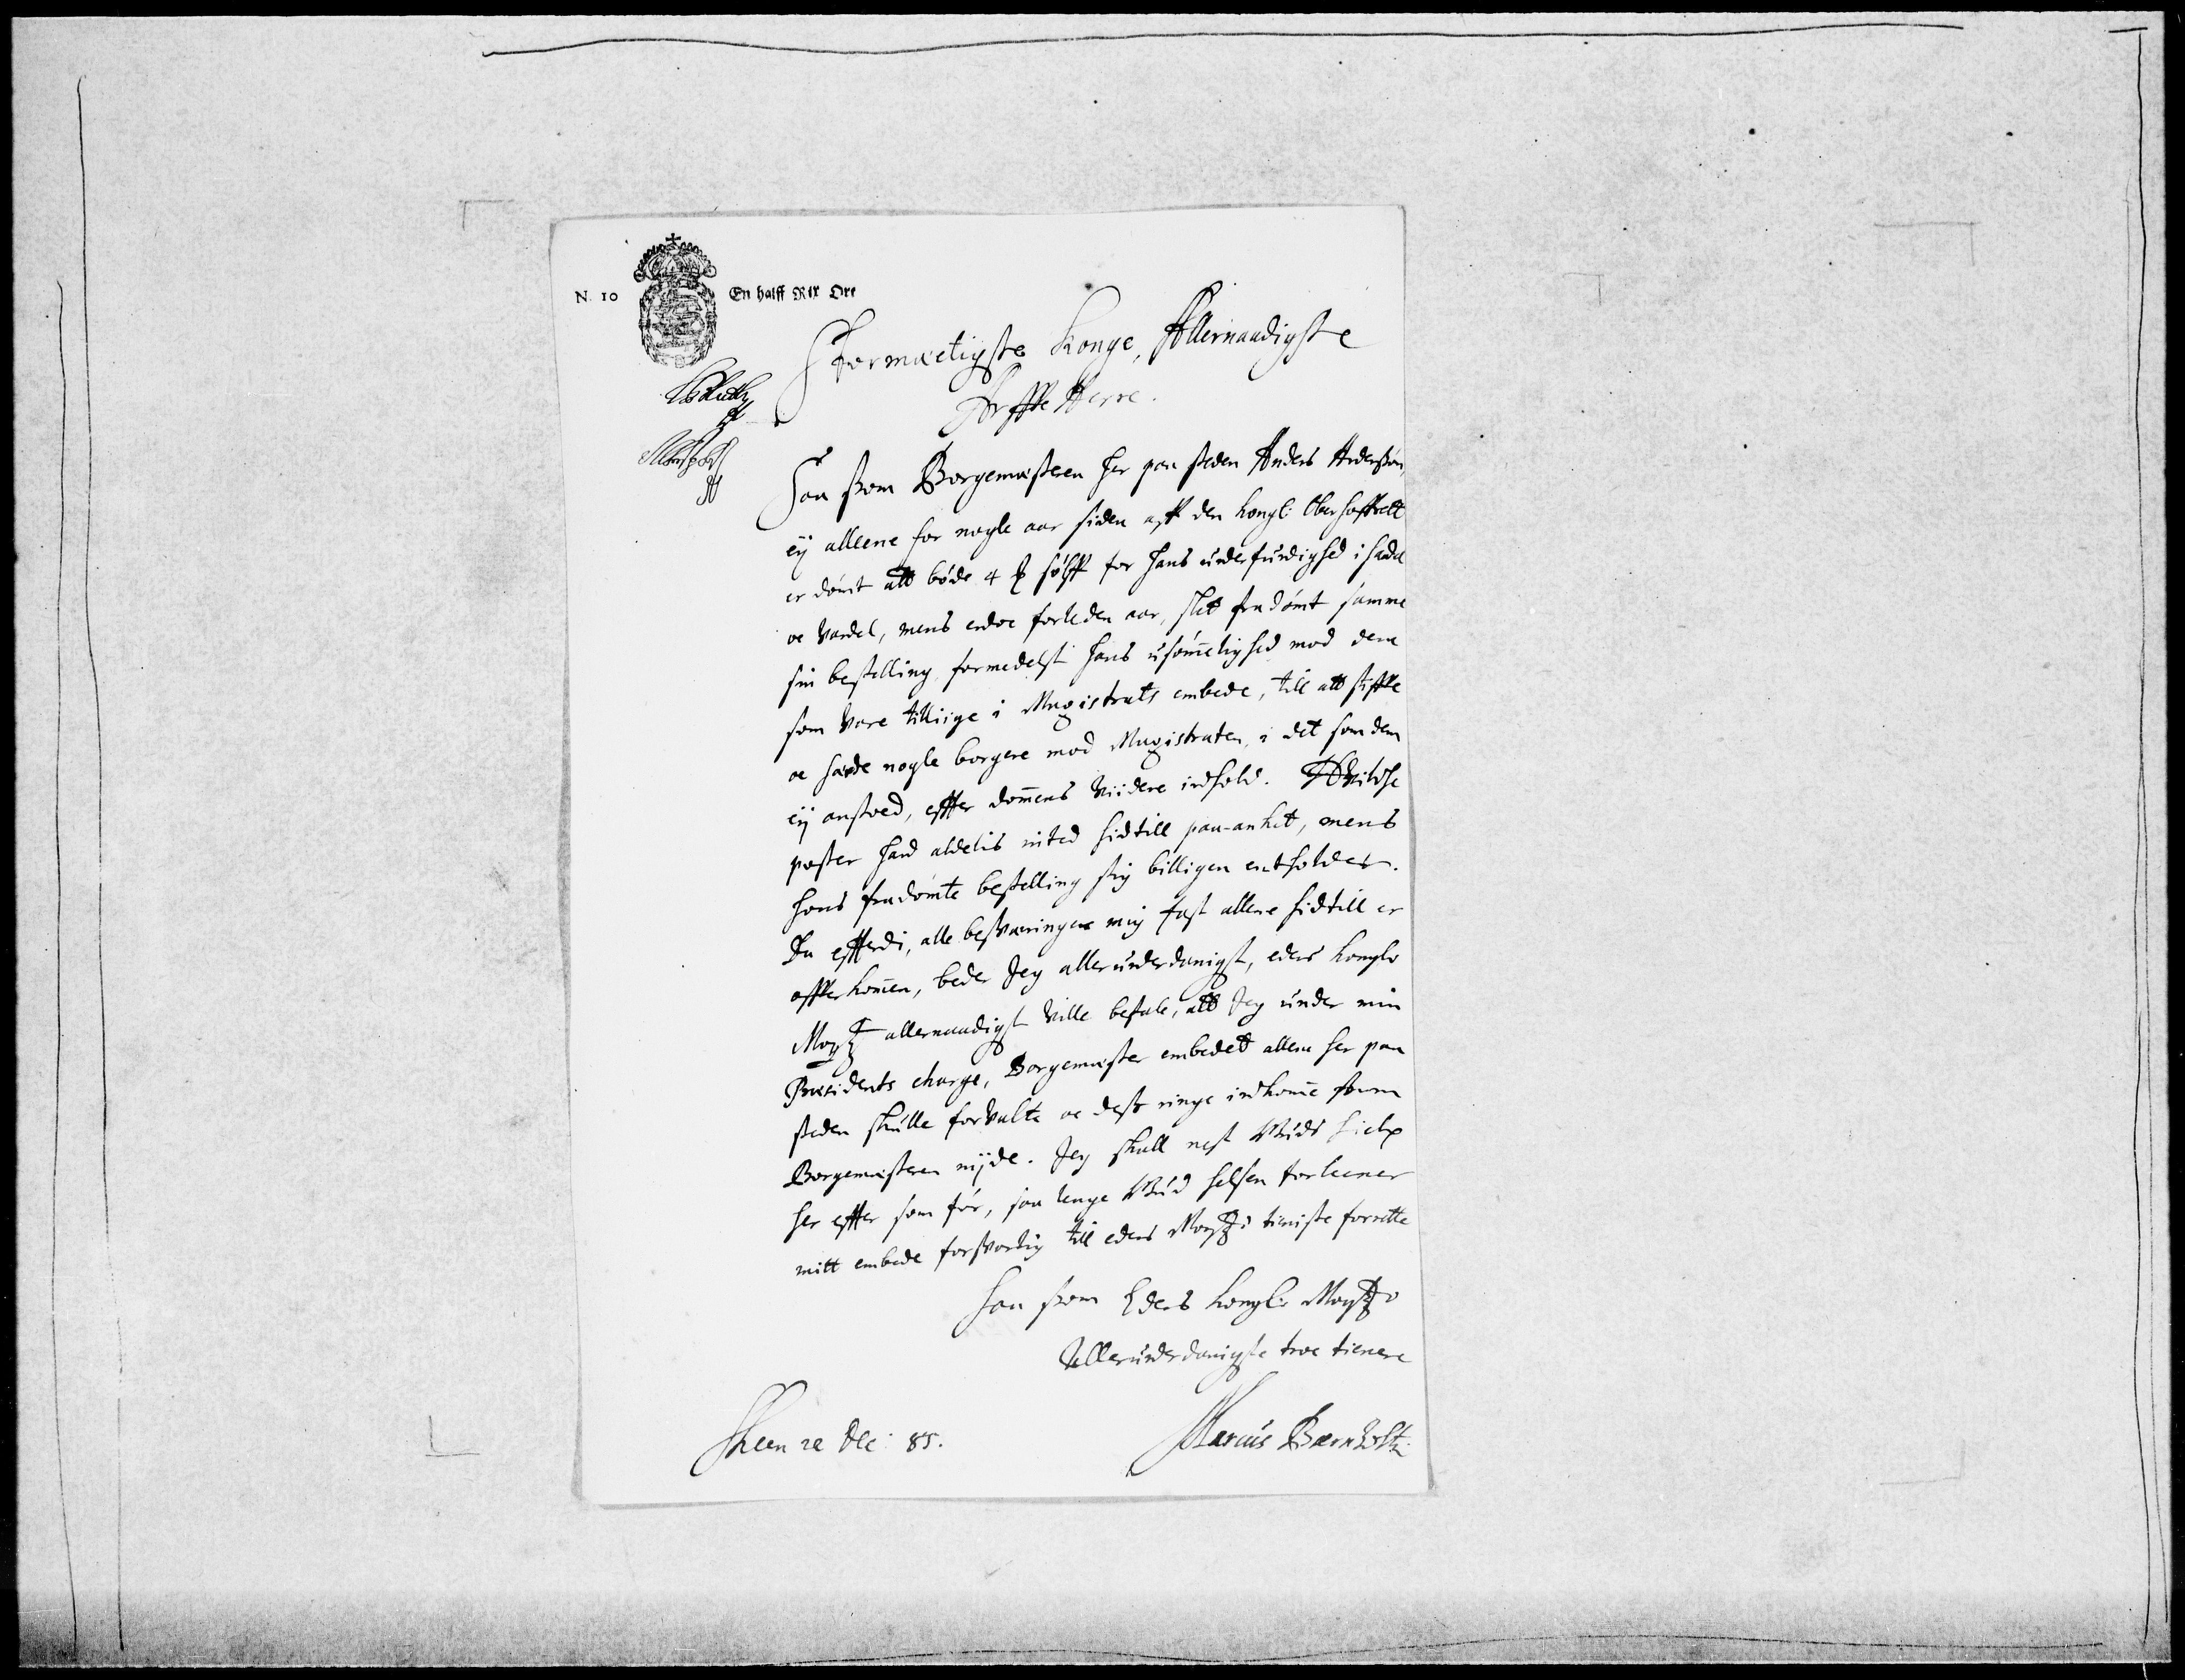 N. 10 En halff Rix Ort
Stormæctigste Konge, Allernaadigste
Arffve Herre.
Saa som Borgemesteren her paa steden Anders Andersøn,
eÿ alleene for nogle aar siden aff den Kongl: Oberhoffrett
er dömt att böde 4 sölff for hans underfundighed i handel
oc Vandel, mens endoc forleden aar, slet fradömt samme
sin bestelling formedelst hans usömmelighed mod dem
som vare tilliige i Magistrats embede, till att stiffte
oc hærde nogle borgere mod Magistraten, i det som dem
eÿ anstoed, effter dommens Viidere indhold. Hvilche
poster hand aldelis inted hidtill paa-anket, mens
hans fradömte bestelling sig billigen entholder.
Da efftterdi, alle besværinger mig fast allene hidtill er
offverkommen, beder Jeg allerunderdanigst, eders Kongls
Mayst allernaadigst Ville befale, att Jeg under min
Præsidents charge, Borgemester embedet allene her paa
steden skulle forvalte oc dess ringe indkomme som
Borgemesteren nÿde. Jeg skall nest Guds hielp
her effter som för, saa lenge Gud helsen forleener
mitt embede forsvarlig till eders Mayts tieniste forrette
Saa som Eders Kongls Mayts
Allerunderdanigste troe tienere
Skeen 22 Dec: 85.
Marcus Bærnholtz